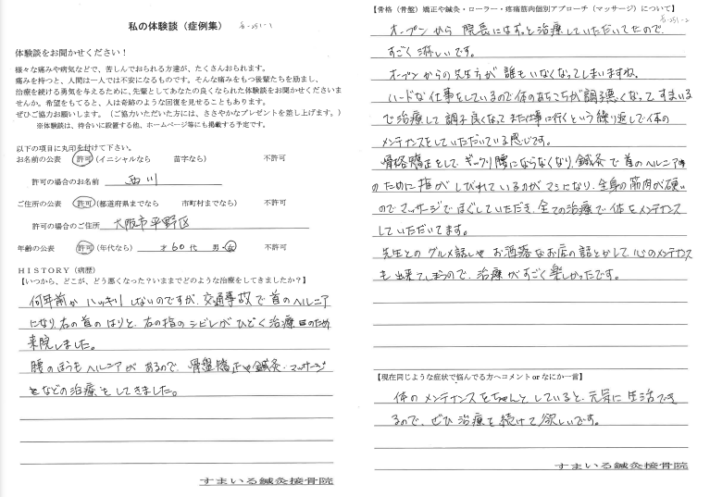 私の体験談（症例集）
体験談をお聞かせください！
様々な痛みや病気などで、苦しんでおられる方達が、たくさんおられます。
痛みを持つと、人間は一人では不安になるものです。そんな痛みをもつ後輩たちを励まし、
治療を続ける勇気を与えるために、先輩としてあなたの良くなられた体験談をお聞かせくださいま
せんか。希望をもてると、人は奇跡のような回復を見せることもあります。
ぜひご協力お願いします。（ご協力いただいた方には、ささやかなプレゼントを差し上げます。）
※体験談は、待合いに設置する他、ホームページ等にも掲載する予定です。
以下の項目に丸印を付けて下さい。
お名前の公表　許可（イニシャルなら　苗字なら）　不許可
許可の場合のお名前　西川
ご住所の公表　許可（都道府県までなら　市町村までなら）　不許可
許可の場合のご住所　大阪市平野区
年齢の公表　許可（年代なら）　才60代　男・女　不許可
HISTORY（病歴）
【いつから、どこが、どう悪くなった？いままでどのような治療をしてきましたか？】
何年前か ハッキリ しないのですが、交通事故で首のヘルニア
になり右の首のはりと、右の指のシビレがひどく治療のため
来院しました。
腰のほうもヘルニアがあるので、骨盤矯正や鍼灸・マッサージ
などの治療をしてきました。
すまいる鍼灸接骨院
【骨格（骨盤）矯正や鍼灸・ローラー・疼痛筋肉個別アプローチ（マッサージ）について】
オープンから 院長にはずっと治療していただいてたので、
すごく淋しいです。
オープンからの先生方が誰もいなくなってしまいますね。
ハードな仕事をしているので体のあちこちが調子悪くなって すまいる
で治療して調子良くなってまた仕事に行くという繰り返しで体の
メンテナンスをしていただいている感じです。
骨格矯正をして、ギックリ腰にならなくなり、鍼灸で首のヘルニア
のために指がしびれているのがマシになり、全身の筋肉が硬い
のでマッサージでほぐしていただき、全ての治療で体をメンテナンス
していただいてます。
先生とのグルメ話しや お洒落なお店の話とかして心のメンテナンス
も出来てしまうので、治療がすごく楽しかったです。
【現在同じような症状で悩んでる方へコメントorなにか一言】
体のメンテナンスをちゃんとしていると、元気に生活でき
るので、ぜひ治療を続けて欲しいです。
すまいる鍼灸接骨院